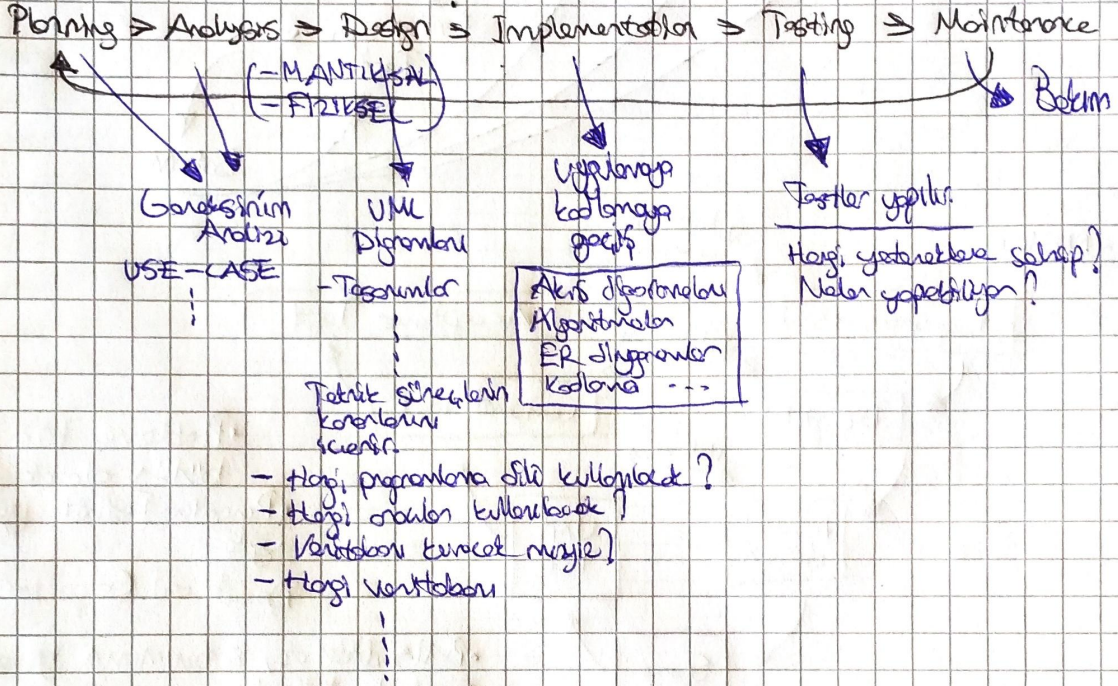 Planning => Analysis => Design => Implementation => Testing => Maintenance
(-MANTIKSAL
- FİZİKSEL)
Bakım
Gereksinim
Analizi
USE-CASE
UML
Diyagramları
- Tasarımlar
Teknik süreçlerin
kararlarını
içerir.
- Hangi programlama dili kullanılacak?
- Hangi araçlar kullanılacak?
- Veritabanı kuracak mıyız?
- Hangi veritabanı
Uygulamaya
kodlamaya
geçiş
Akış diyagramları
Algoritmalar
ER diyagramlar
Kodlama ...
Testler yapılır.
Hangi yeteneklere sahip?
Neler yapabiliyor?